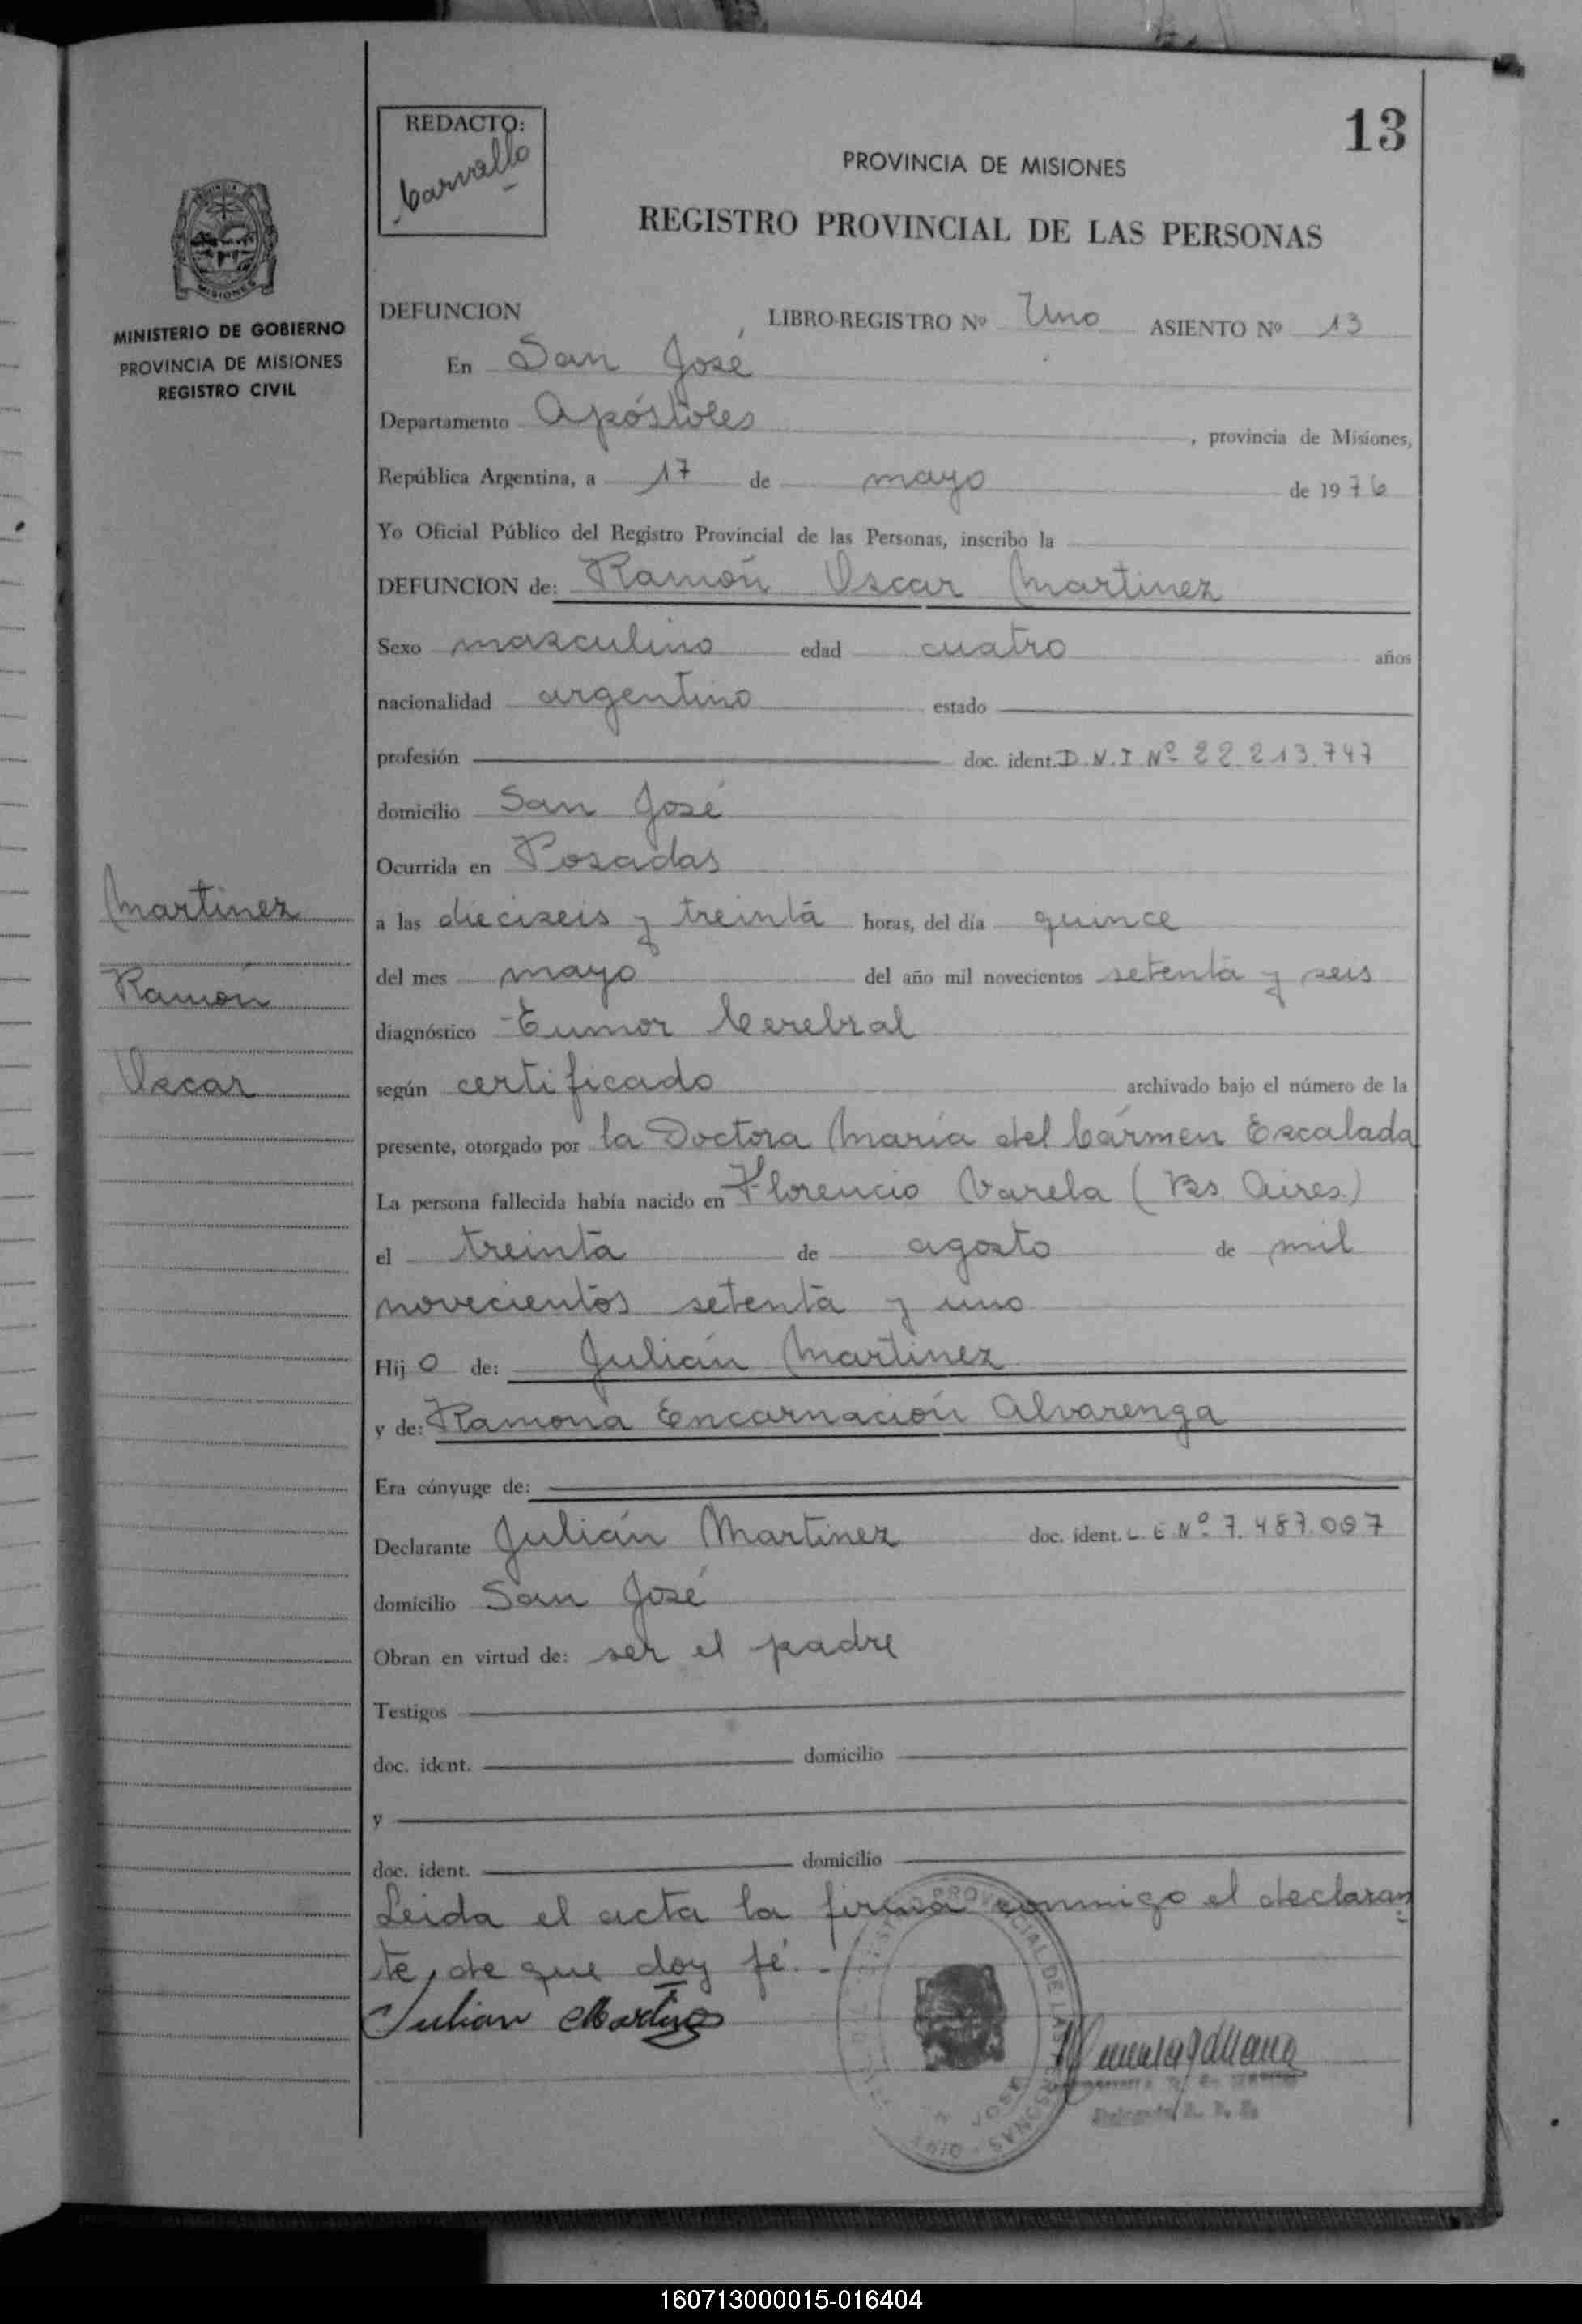 13
REDACTO:
Carvallo
PROVINCIA DE MISIONES
REGISTRO PROVINCIAL DE LAS PERSONAS
MISIONES
MINISTERIO DE GOBIERNO
PROVINCIA DE MISIONES
REGISTRO CIVIL
DEFUNCION LIBRO-REGISTRO Nº Uno ASIENTO Nº 13
En San José
Departamento Apóstoles , provincia de Misiones,
República Argentina, a 17 de mayo de 1976
Yo Oficial Público del Registro Provincial de las Personas, inscribo la
DEFUNCION de: Ramón Oscar Martinez
Sexo masculino edad cuatro años
nacionalidad argentino estado
profesión doc. ident. D.N.I Nº 22.213.747
domicilio San José
Ocurrida en Posadas
Martinez
Ramón
Oscar
a las dieciseis y treinta horas, del día quince
del mes mayo del año mil novecientos setenta y seis
diagnóstico Tumor Cerebral
según certificado archivado bajo el número de la
presente, otorgado por la Doctora María del Cármen Escalada
La persona fallecida había nacido en Florencio Varela (Bs. Aires)
el treinta de agosto de mil
novecientos setenta y uno
Hij o de: Julián Martinez
y de: Ramona Encarnación Alvarenga
Era cónyuge de:
Declarante Julián Martinez doc. ident. L E Nº 7.487.007
domicilio San José
Obran en virtud de: ser el padre
Testigos
doc. ident. domicilio
y
doc. ident. domicilio
Leida el acta la firma conmigo el declaran
te, de que doy fé.-
Julian Martinez
160713000015-016404